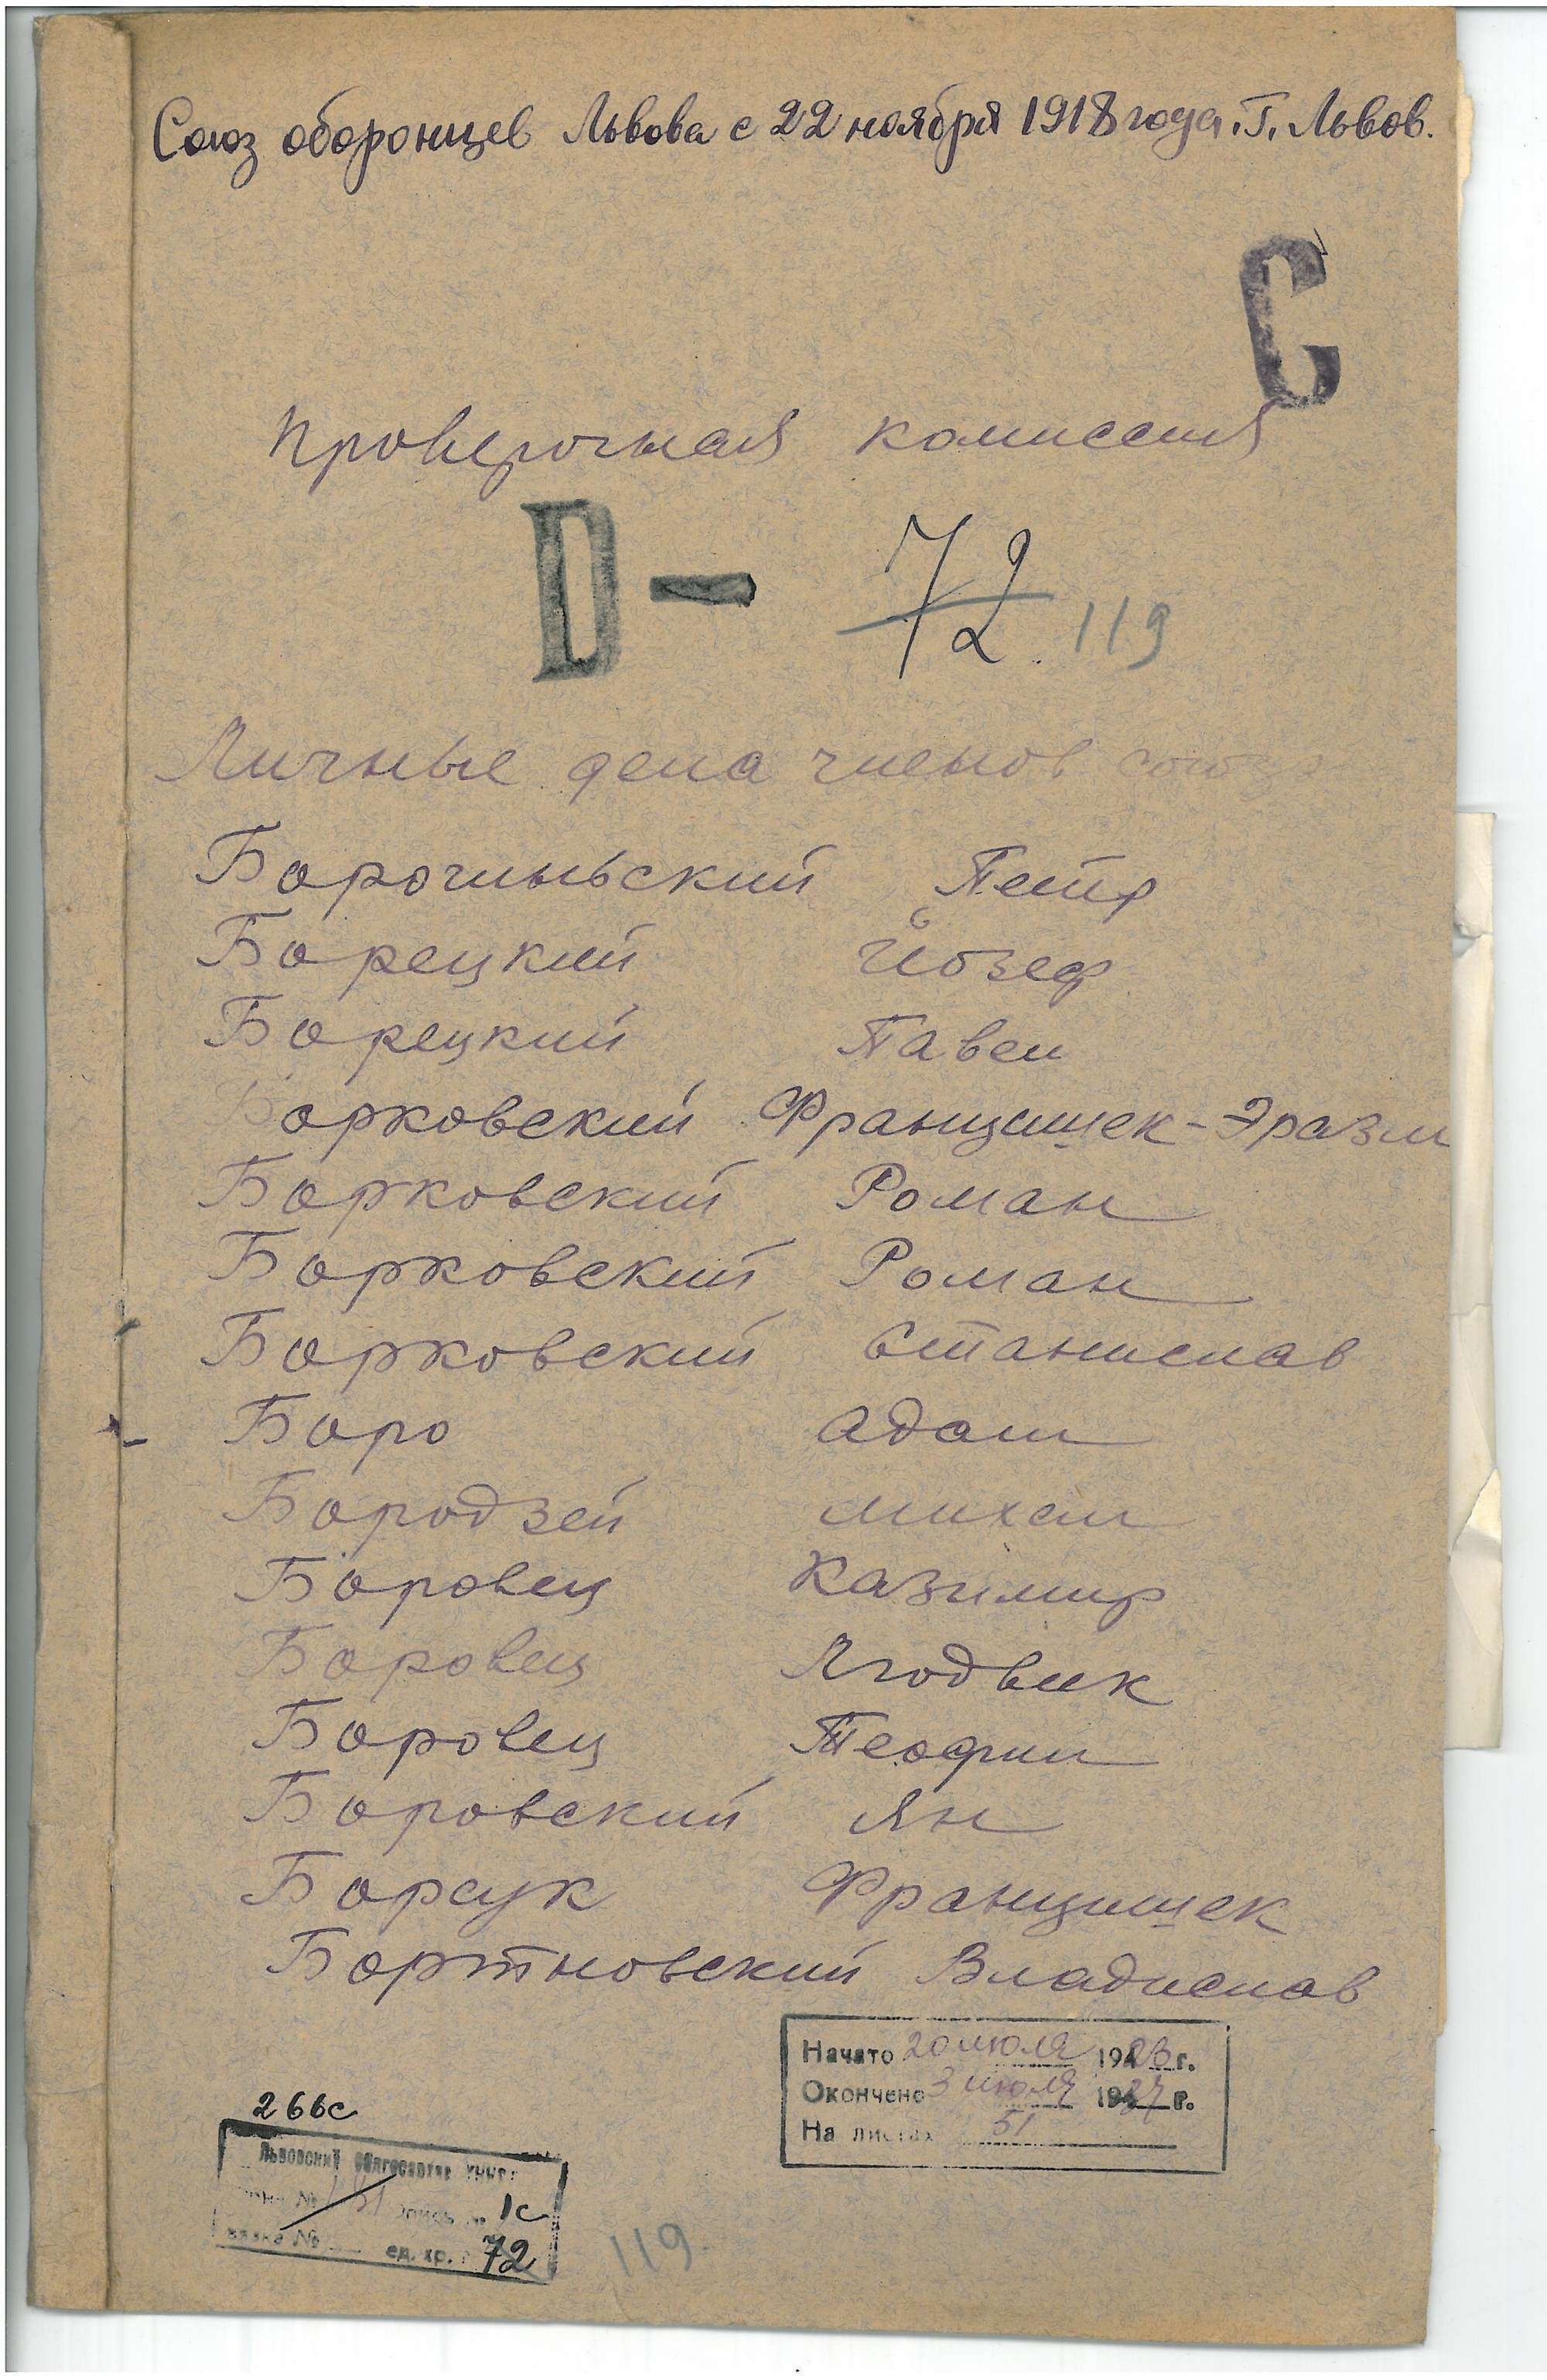 Союз оборонцев Львова с 22 ноября 1918 года. Г. Львов.
С
Проверочная комиссия
D- 72 119
Личные дела членов союза
Борочиньский Петр
Борецкий Йозеф
Борецкий Павел
Борковский Францишек-Эразм
Борковский Роман
Борковский Роман
Борковский Станислав
Боро Адам
Бородзей Михал
Боровец Казимир
Боровец Людвик
Боровец Теофил
Боровский Ян
Борсук Францишек
Бортновский Владислав
Начато 20 июля 1923 г.
Окончено 3 июля 1937 г.
На листах 51
266с
Львовский облгосархив УНКВД
опись № 1с
вязка № ед. хр. 72
119